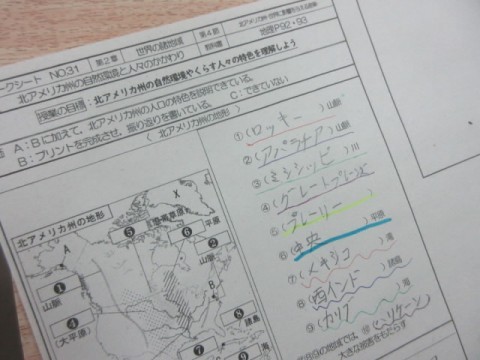 ークシート NO.31
第2章
世界の諸地域
第4節
教科書
地理P92・93
北アメリカ州の自然環境と人々のかかわり
授業の目標:北アメリカ州の自然環境やくらす人々の特色を理解しよう
A:Bに加えて、北アメリカ州の人口の特色を説明できている。
B:プリントを完成させ、振り返りを書いている。 C:できていない
(北アメリカ州の地形)
①(ロッキー)山脈
②(アパラチア)山脈
③(ミシシッピ)川
④(グレートプレーンズ
⑤(プレーリー)
⑥(中央)平原
⑦(メキシコ)湾
⑧(西インド)諸島
⑨(カリブ)海
⑩(ハリケーン)
大きな被害をもたらす
北アメリカ州の地形
A
X
❺
❻
平原
❷
山脈
❶
山脈
B
❹
(大平原)
❽
諸島
❼
❾